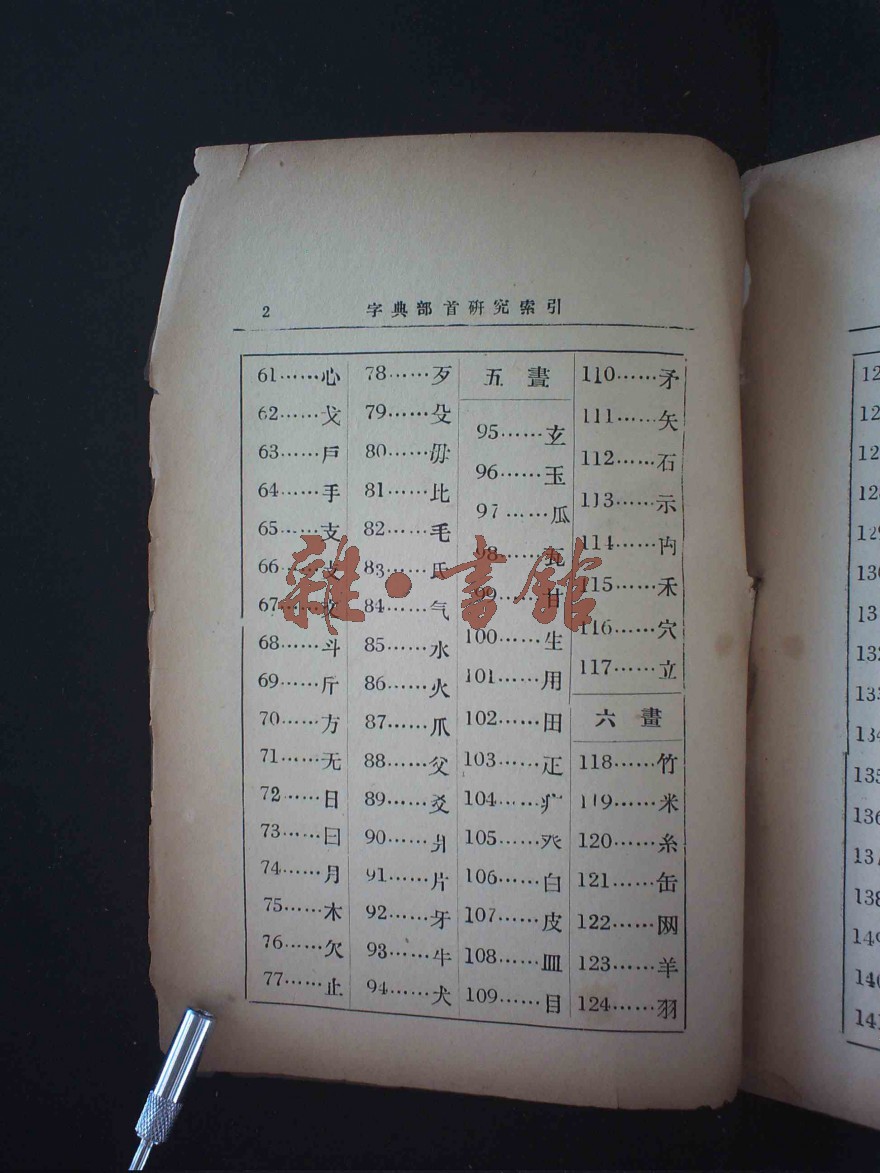 2
字典部首研究索引
61……心
62……戈
63……戶
64……手
65……支
66……攴
67……文
68……斗
69……斤
70……方
71……无
72……日
73……曰
74……月
75……木
76……欠
77……止
78……歹
79……殳
80……毋
81……比
82……毛
83……氏
84……气
85……水
86……火
87……爪
88……父
89……爻
90……爿
91……片
92……牙
93……牛
94……犬
五畫
95……玄
96……玉
97……瓜
98……瓦
99……甘
100……生
101……用
102……田
103……疋
104……疒
105……癶
106……白
107……皮
108……皿
109……目
110……矛
111……矢
112……石
113……示
114……禸
115……禾
116……穴
117……立
六畫
118……竹
119……米
120……糸
121……缶
122……网
123……羊
124……羽
雜·書館
12
12
12
128
129
130
13
132
133
134
135
136
137
138
149
140
141